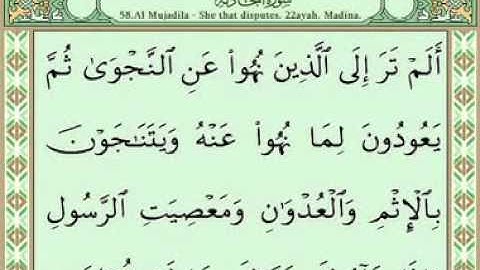 سورة المجادلة
58.Al Mujadila - She that disputes. 22ayah. Madina.
أَلَمْ تَرَ إِلَى ٱلَّذِينَ نُهُوا۟ عَنِ ٱلنَّجْوَىٰ ثُمَّ
يَعُودُونَ لِمَا نُهُوا۟ عَنْهُ وَيَتَنَـٰجَوْنَ
بِٱلْإِثْمِ وَٱلْعُدْوَٰنِ وَمَعْصِيَتِ ٱلرَّسُولِ